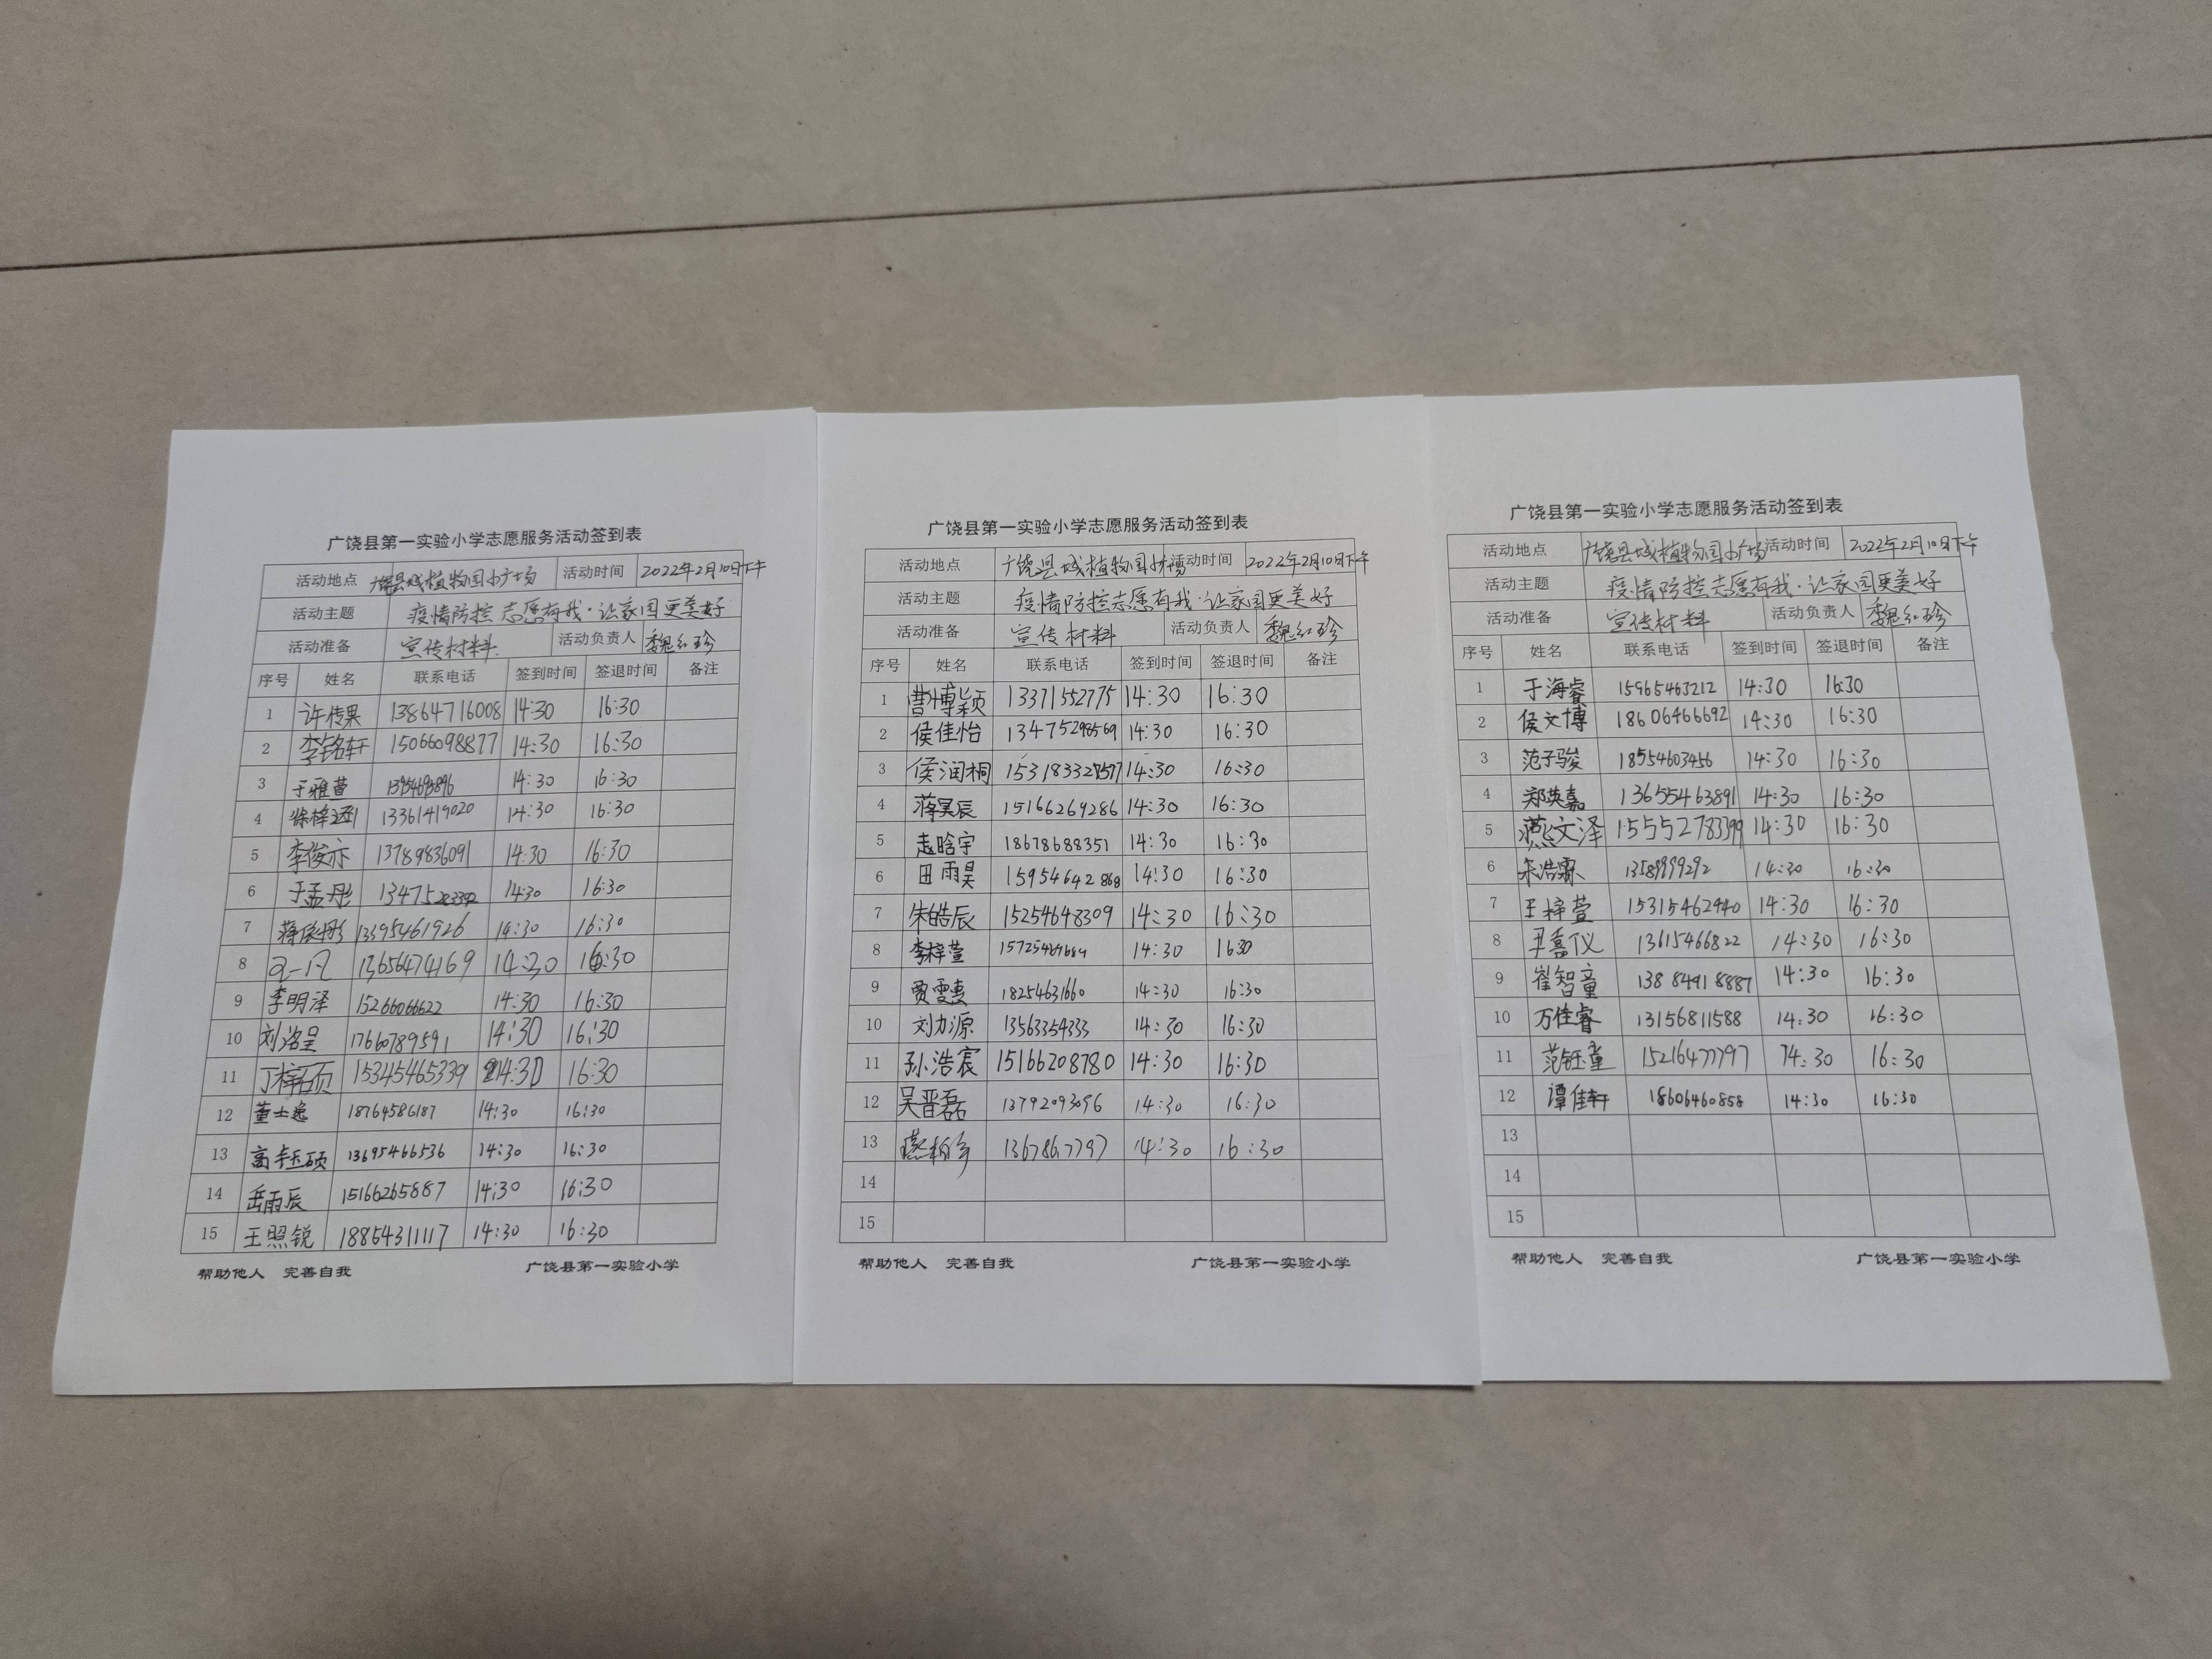 广饶县第一实验小学志愿服务活动签到表
活动地点 广饶县城植物园小广场 活动时间 2022年2月10日下午
活动主题 疫情防控 志愿有我·让家园更美好
活动准备 宣传材料. 活动负责人 魏红珍
序号 姓名 联系电话 签到时间 签退时间 备注
1 许传果 13864716008 14:30 16:30
2 李铭轩 15066098877 14:30 16:30
3 于雅萱 14:30 16:30
4 徐梓 13361419020 14:30 16:30
5 李俊亦 13789836091 14:30 16:30
6 于孟彤 14:30 16:30
7 蒋俊彤 13395461926 14:30 16:30
8 13656474169 14:30 16:30
9 李明泽 15266066622 14:30 16:30
10 刘洺呈 17660789591 14:30 16:30
11 丁梓硕 15345465339 14:30 16:30
12 董士逸 18764586187 14:30 16:30
13 高钰硕 13695466536 14:30 16:30
14 岳雨辰 15166265887 14:30 16:30
15 王照锐 18854311117 14:30 16:30
帮助他人 完善自我 广饶县第一实验小学
广饶县第一实验小学志愿服务活动签到表
活动地点 广饶县城植物园小广场 活动时间 2022年2月10日下午
活动主题 疫情防控志愿有我·让家园更美好
活动准备 宣传材料 活动负责人 魏红珍
序号 姓名 联系电话 签到时间 签退时间 备注
1 曹博颖 13371552775 14:30 16:30
2 侯佳怡 13475298569 14:30 16:30
3 侯润桐 14:30 16:30
4 蒋昊辰 15166269286 14:30 16:30
5 赵晗宇 18678688351 14:30 16:30
6 田雨昊 15954642868 14:30 16:30
7 朱皓辰 15254648309 14:30 16:30
8 李梓萱 14:30 16:30
9 贾雯惠 18254631660 14:30 16:30
10 刘力源 13563354333 14:30 16:30
11 孙浩宸 15166208780 14:30 16:30
12 吴晋磊 13792093096 14:30 16:30
13 14:30 16:30
14
15
帮助他人 完善自我 广饶县第一实验小学
广饶县第一实验小学志愿服务活动签到表
活动地点 广饶县城植物园小广场 活动时间 2022年2月10日下午
活动主题 疫情防控志愿有我·让家园更美好
活动准备 宣传材料 活动负责人 魏红珍
序号 姓名 联系电话 签到时间 签退时间 备注
1 于海睿 15965463212 14:30 16:30
2 侯文博 18606466692 14:30 16:30
3 范子骏 18554603456 14:30 16:30
4 郑英嘉 13655463891 14:30 16:30
5 燕文泽 15552783399 14:30 16:30
6 宋浩霖 13589999292 14:30 16:30
7 王梓萱 15315462440 14:30 16:30
8 嘉仪 13615466822 14:30 16:30
9 崔智童 13884918887 14:30 16:30
10 万佳睿 13156811588 14:30 16:30
11 范钰童 15216477797 14:30 16:30
12 谭佳轩 18606460858 14:30 16:30
13
14
15
帮助他人 完善自我 广饶县第一实验小学